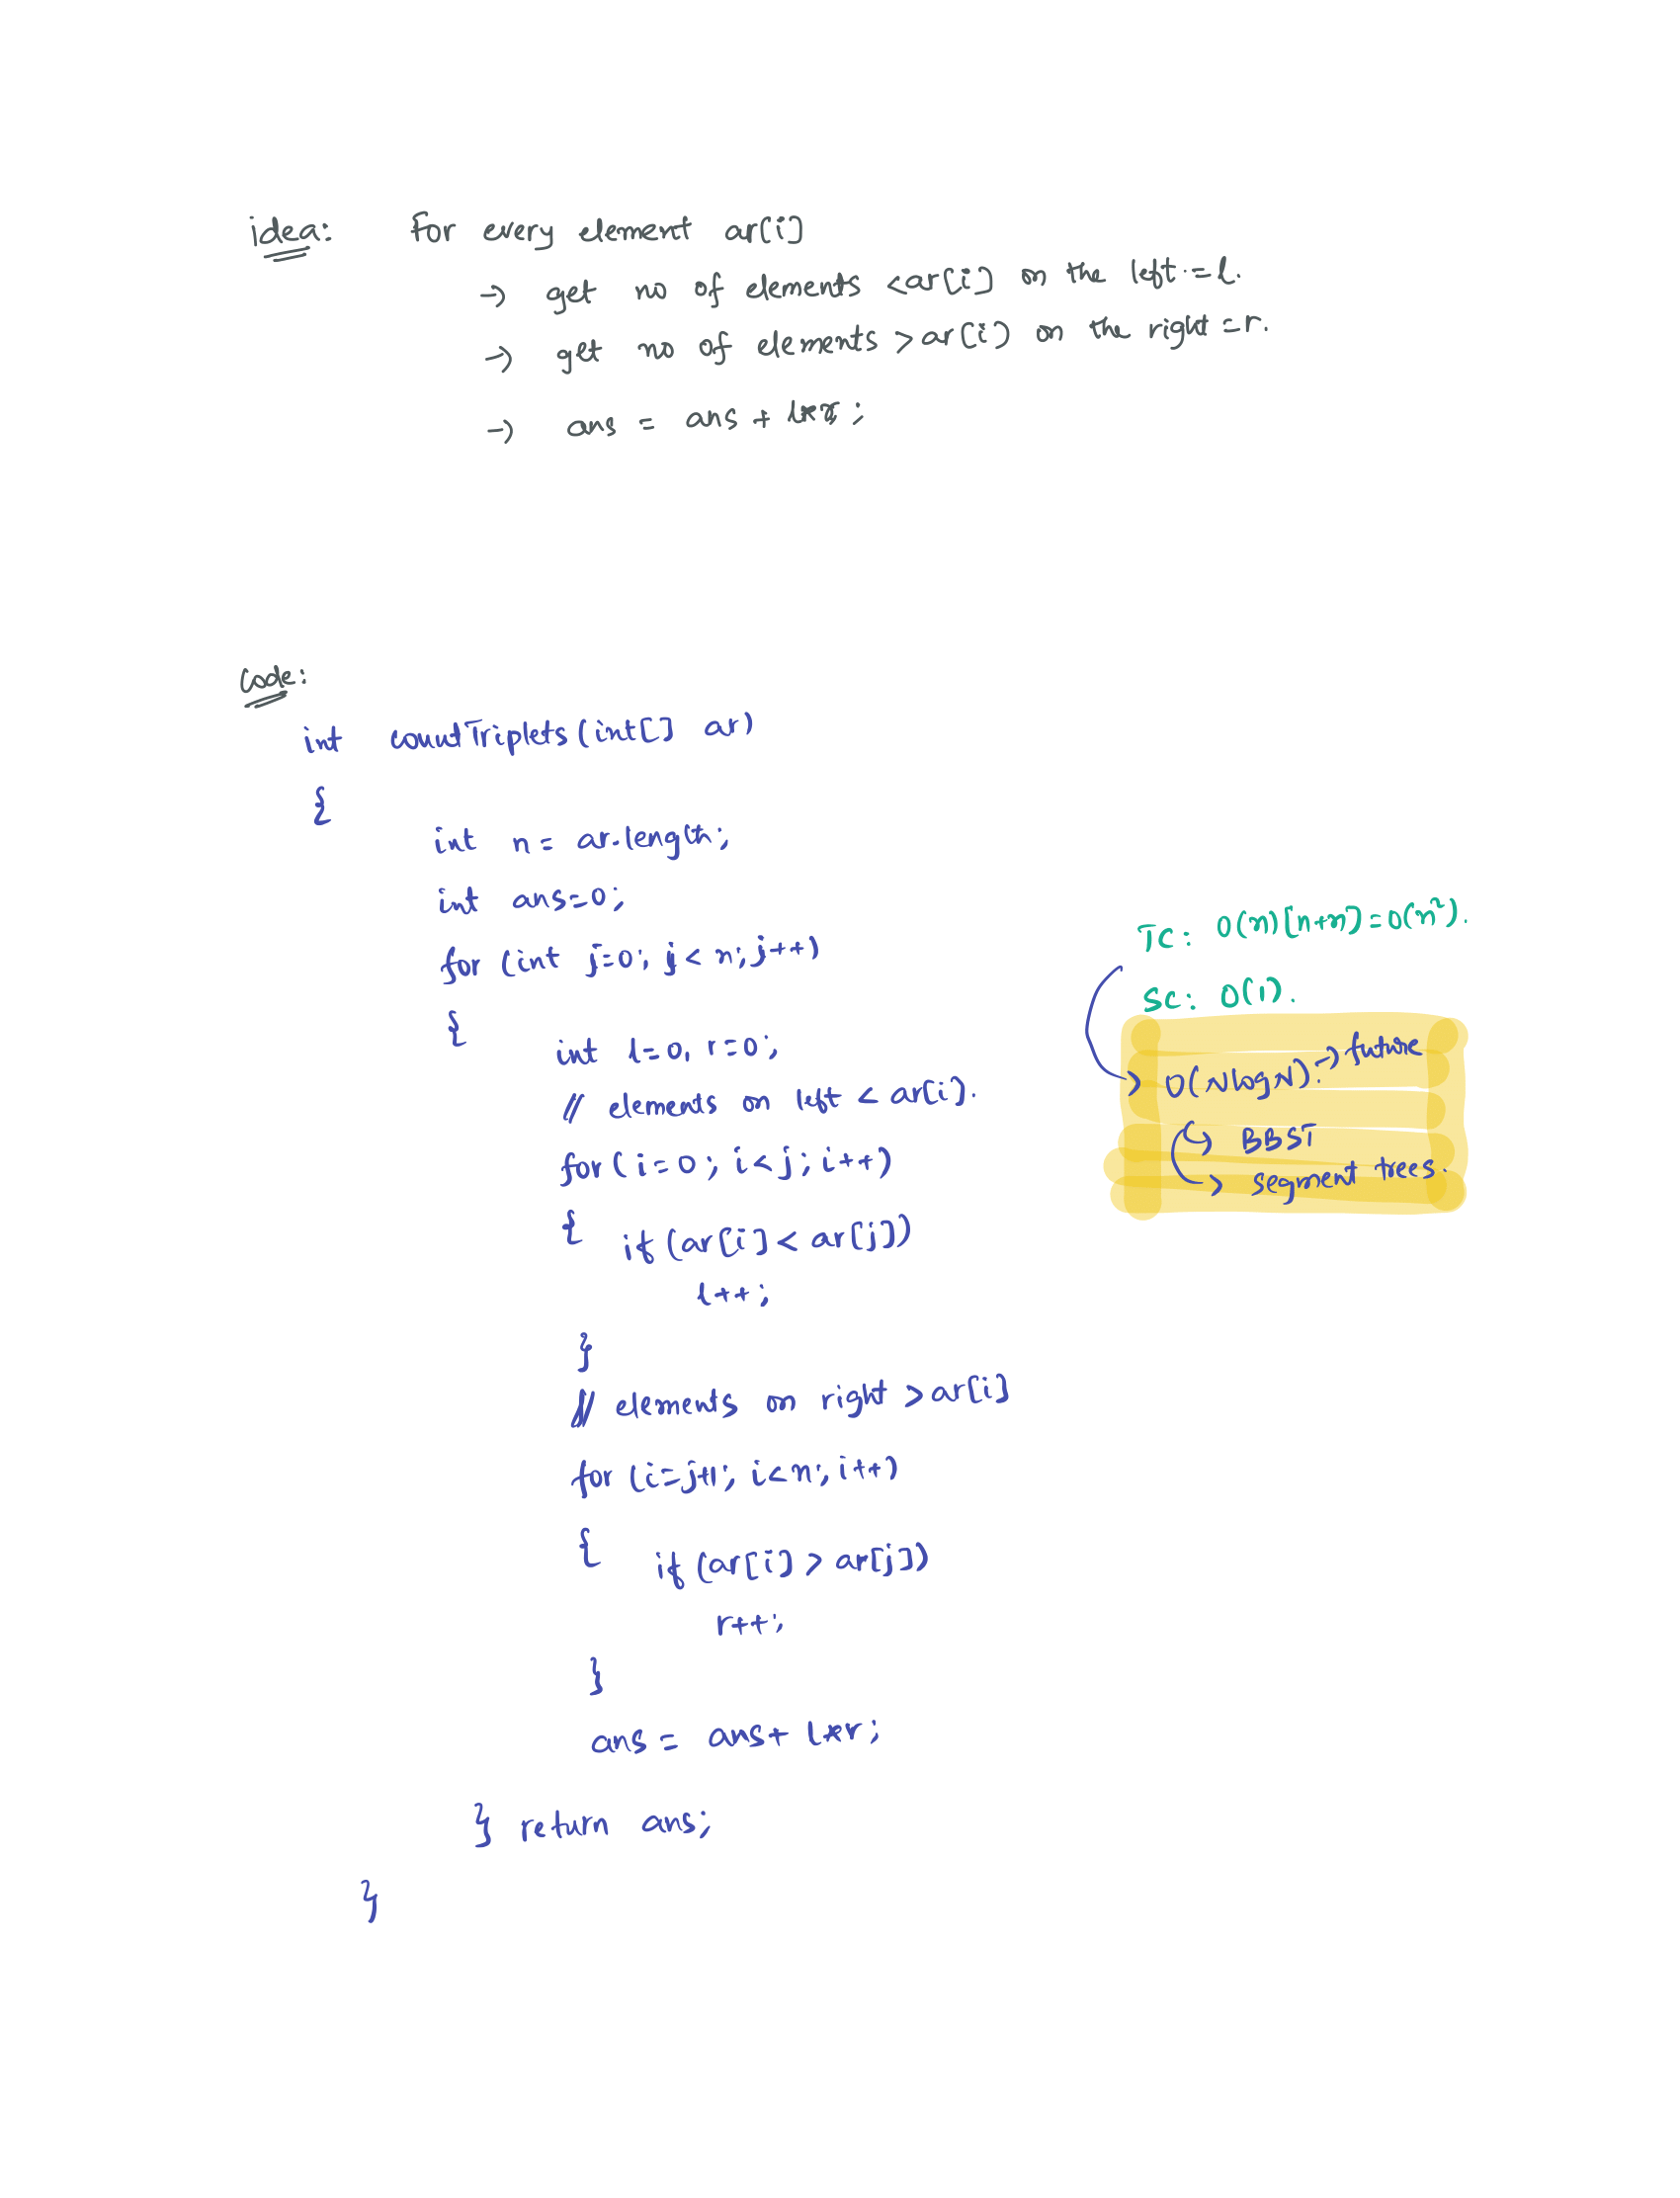 idea: For every element ar[i]
→ get no of elements <ar[i] on the left = l.
→ get no of elements > ar[i] on the right = r.
→ ans = ans + l*r;
Code:
int countTriplets(int[] ar)
{
int n = ar.length;
int ans=0;
for (int j=0; j < n; j++)
{
int l=0, r=0;
// elements on left < ar[i].
for (i=0; i<j; i++)
{ if (ar[i] < ar[j])
l++;
}
// elements on right > ar[i]
for (i=j+1; i<n; i++)
{ if (ar[i] > ar[j])
r++;
}
ans = ans + l*r;
} return ans;
}
TC: O(n)[n+n] = O(n²).
SC: O(1).
> O(NlogN). → future
↳ BBST
> segment trees.